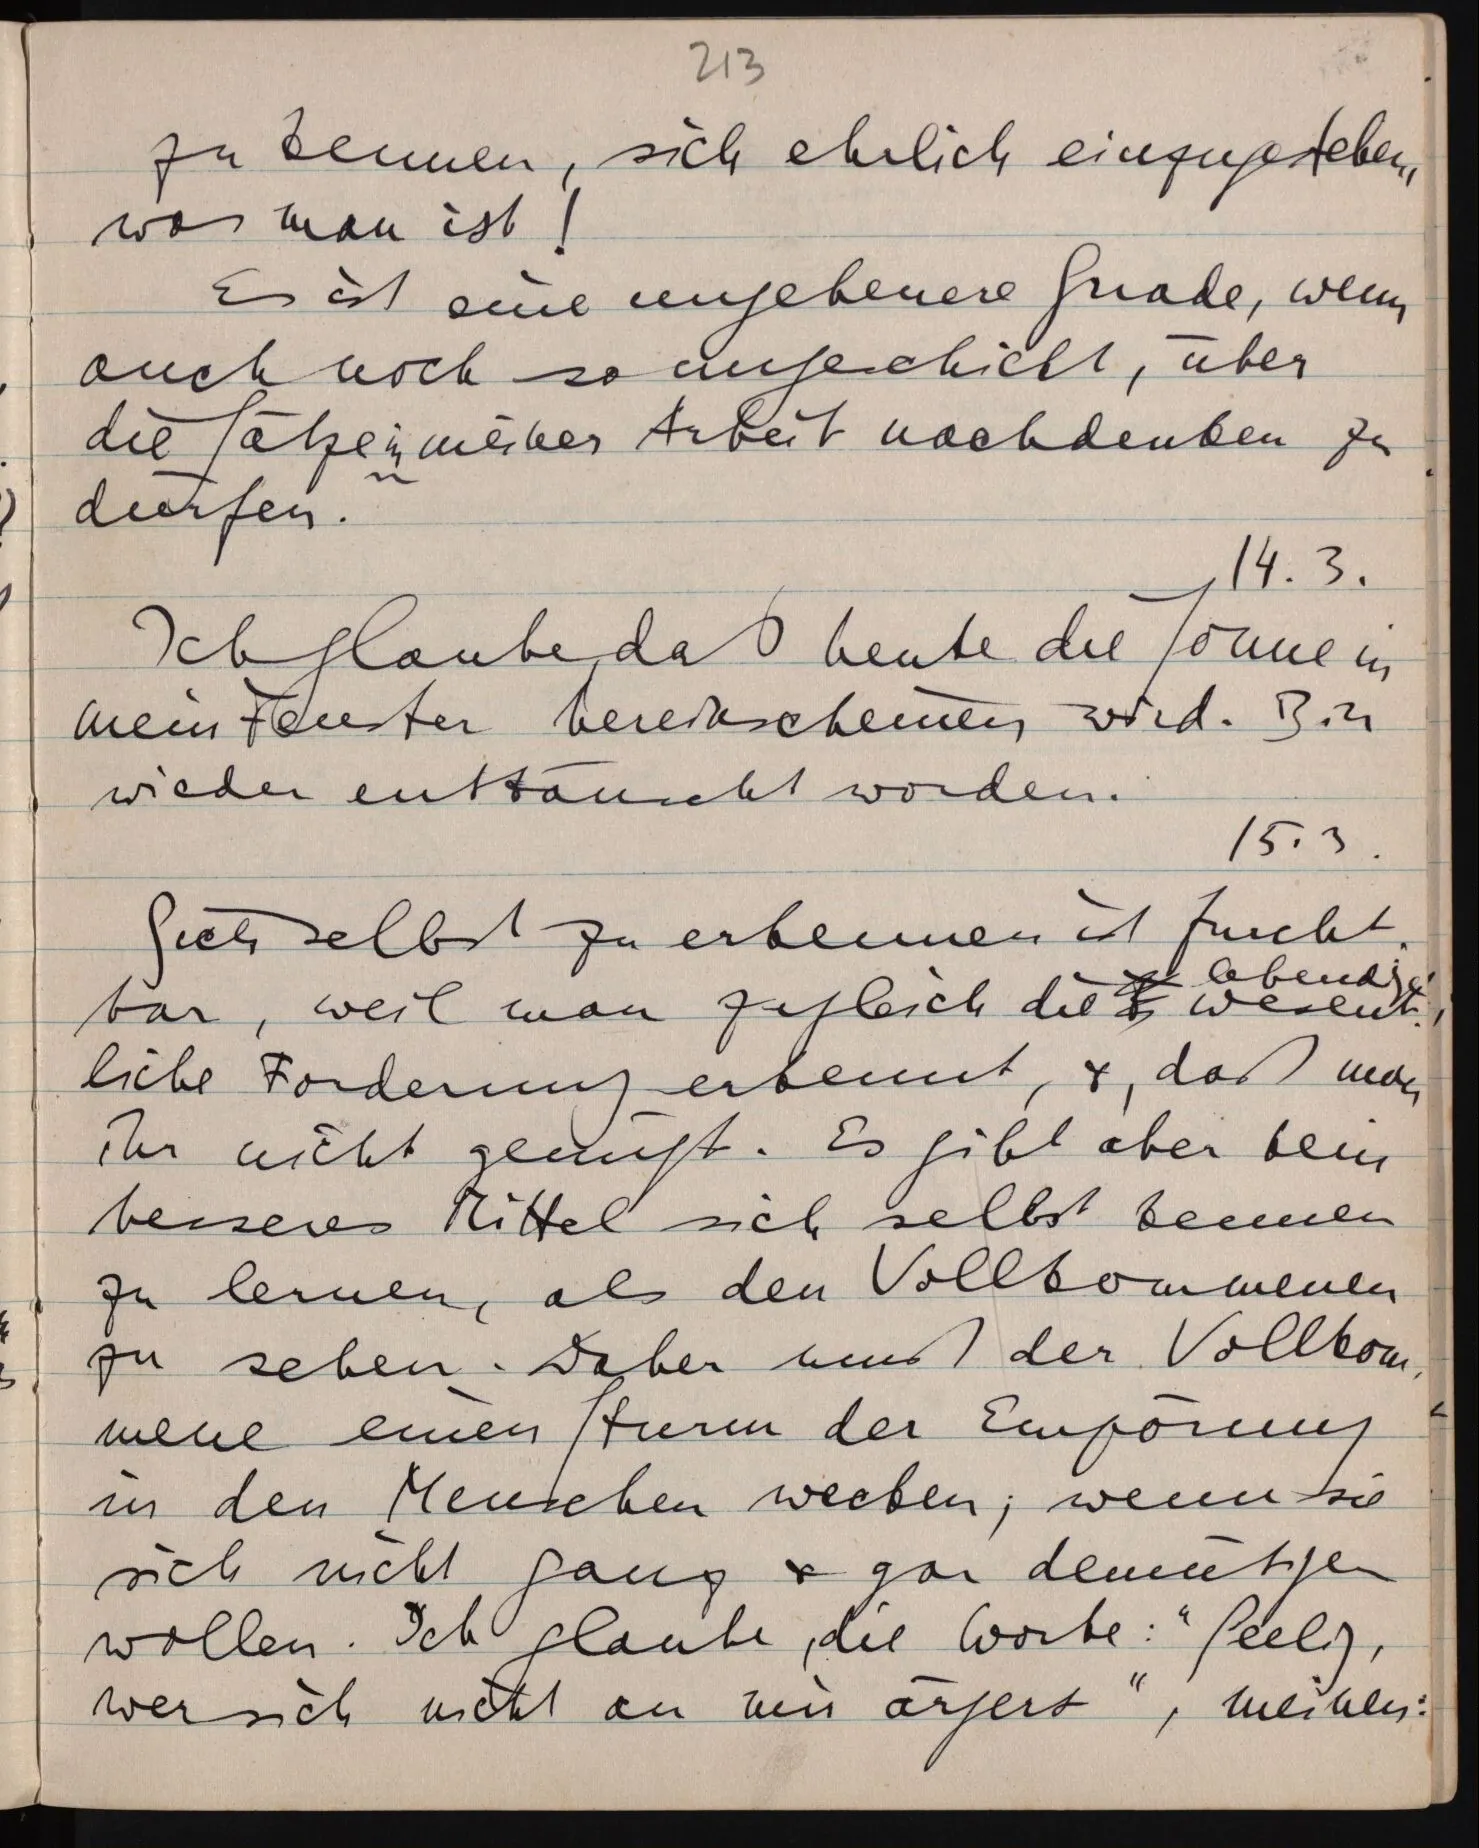 213
zu kennen, sich ehrlich einzugestehen,
was man ist!
Es ist eine ungeheuere Gnade, wenn
auch noch so ungeschickt, über
die Sätze in meiner Arbeit nachdenken zu
dürfen.
14. 3.
Ich glaube, daß heute die Sonne in
mein Fenster hereinscheinen wird. Bin
wieder enttäuscht worden.
15. 3.
Sich selbst zu erkennen ist furcht-
lebendige,
bar, weil man zugleich die wesent-
liche Forderung erkennt, &, daß man
ihr nicht genügt. Es gibt aber kein
besseres Mittel sich selbst kennen
zu lernen, als den Vollkommenen
zu sehen. Daher muß der Vollkom-
mene einen Sturm der Empörung
in den Menschen wecken; wenn sie
sich nicht ganz & gar demütigen
wollen. Ich glaube, die Worte: "Seelig,
wer sich nicht an mir ärgert", meinen: